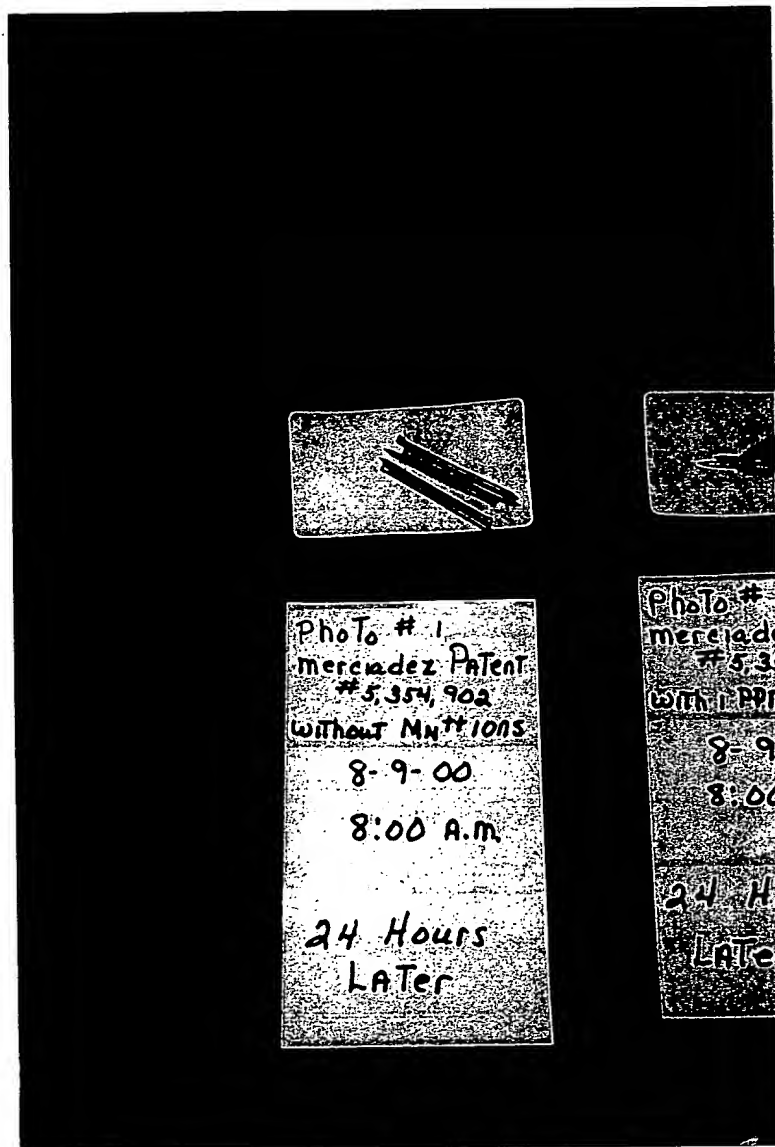 PhoTo # 1
merciadez PATenT
#5,354,902
WiThouT MN++ IONS
8-9-00
8:00 A.m.
24 Hours
LATer
PhoTo #
merciade
#5,3
WiTh 1 PP
8-9
8:00
24 H
LATe